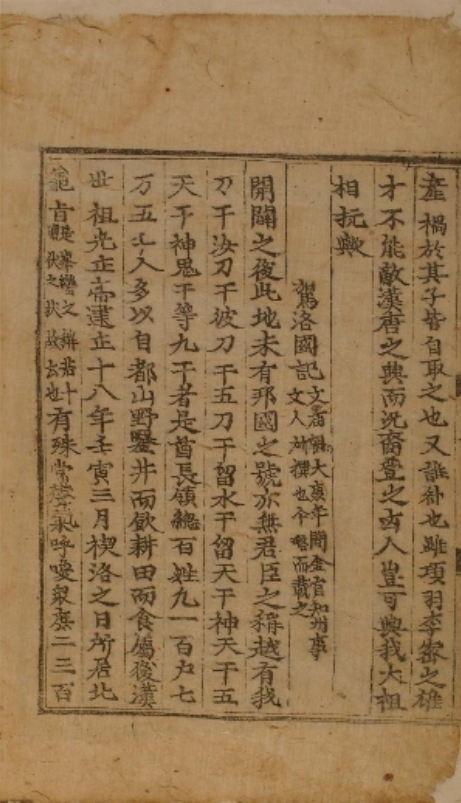 産禍於其子皆自取之也又誰咎也雖項羽李密之雄
才不能敵漢唐之興而況裔萱之凶人豈可與我大祖
相抗歟
駕洛國記
文廟朝大康年間金官知州事
文人所撰也今略而載之
開闢之後此地未有邦國之號亦無君臣之稱越有我
刀干汝刀干彼刀干五刀干留水干留天干神天干五
天干神鬼干等九干者是酋長領總百姓九一百戶七
万五千人多以自都山野鑿井而飲耕田而食屬後漢
世祖光正帝建正十八年壬寅三月禊洛之日所居北
龜旨
是峯巒之稱若十
朋伏之狀故云也
有殊常聲氣呼喚衆庶二三百